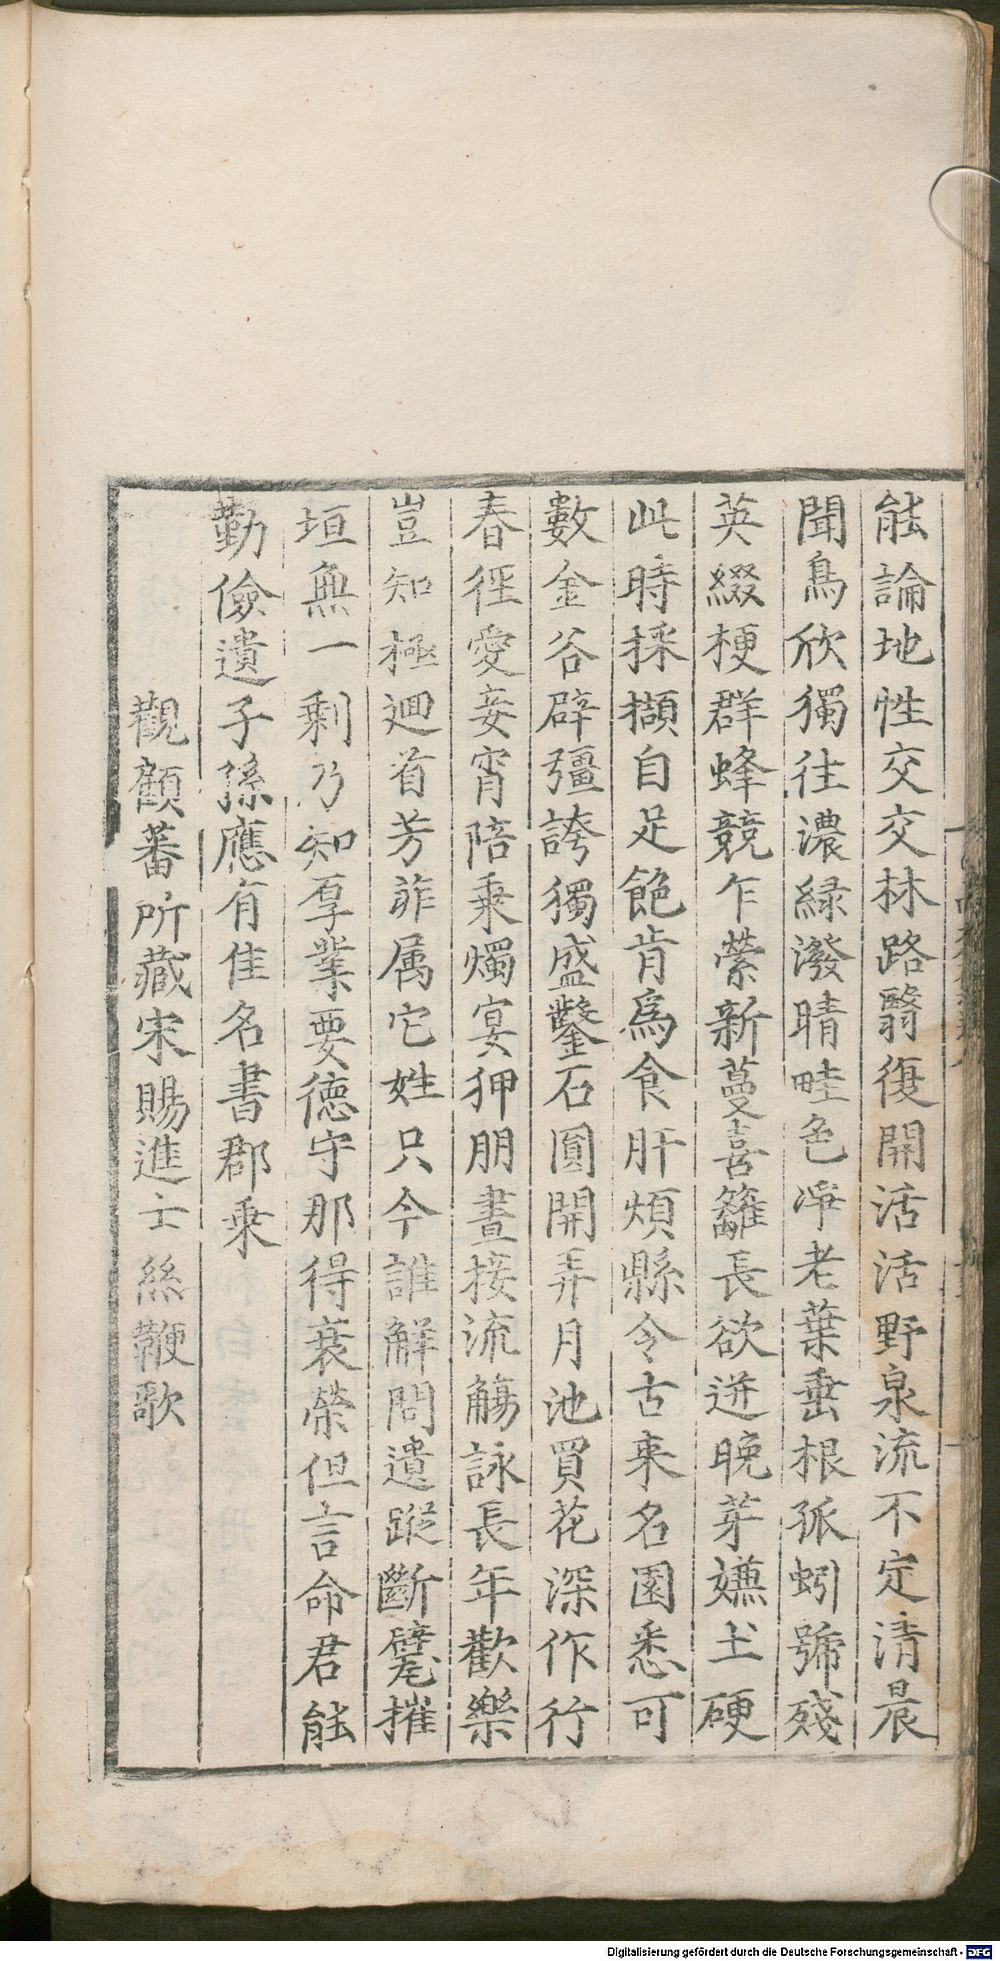 能論地性交交林路翳復開活活野泉流不定清晨
聞鳥欣獨往濃緑潑晴畦色凈老葉垂根孤蚓號殘
英綴梗群蜂競乍縈新蔓喜籬長欲迸晚芽嫌土硬
此時採擷自足飽肯爲食肝煩縣令古来名園悉可
數金谷辟彊誇獨盛鑿石圓開弄月池買花深作行
春徑愛妾宵陪乗燭宴狎朋晝接流觴詠長年歡樂
豈知極迴首芳菲属它姓只今誰解問遺蹤斷甓摧
垣無一剩乃知厚業要德守那得衰榮但言命君能
勤儉遺子孫應有佳名書郡乗
觀顧蕃所藏宋賜進士絲鞭歌
Digitalisierung gefördert durch die Deutsche Forschungsgemeinschaft - DFG